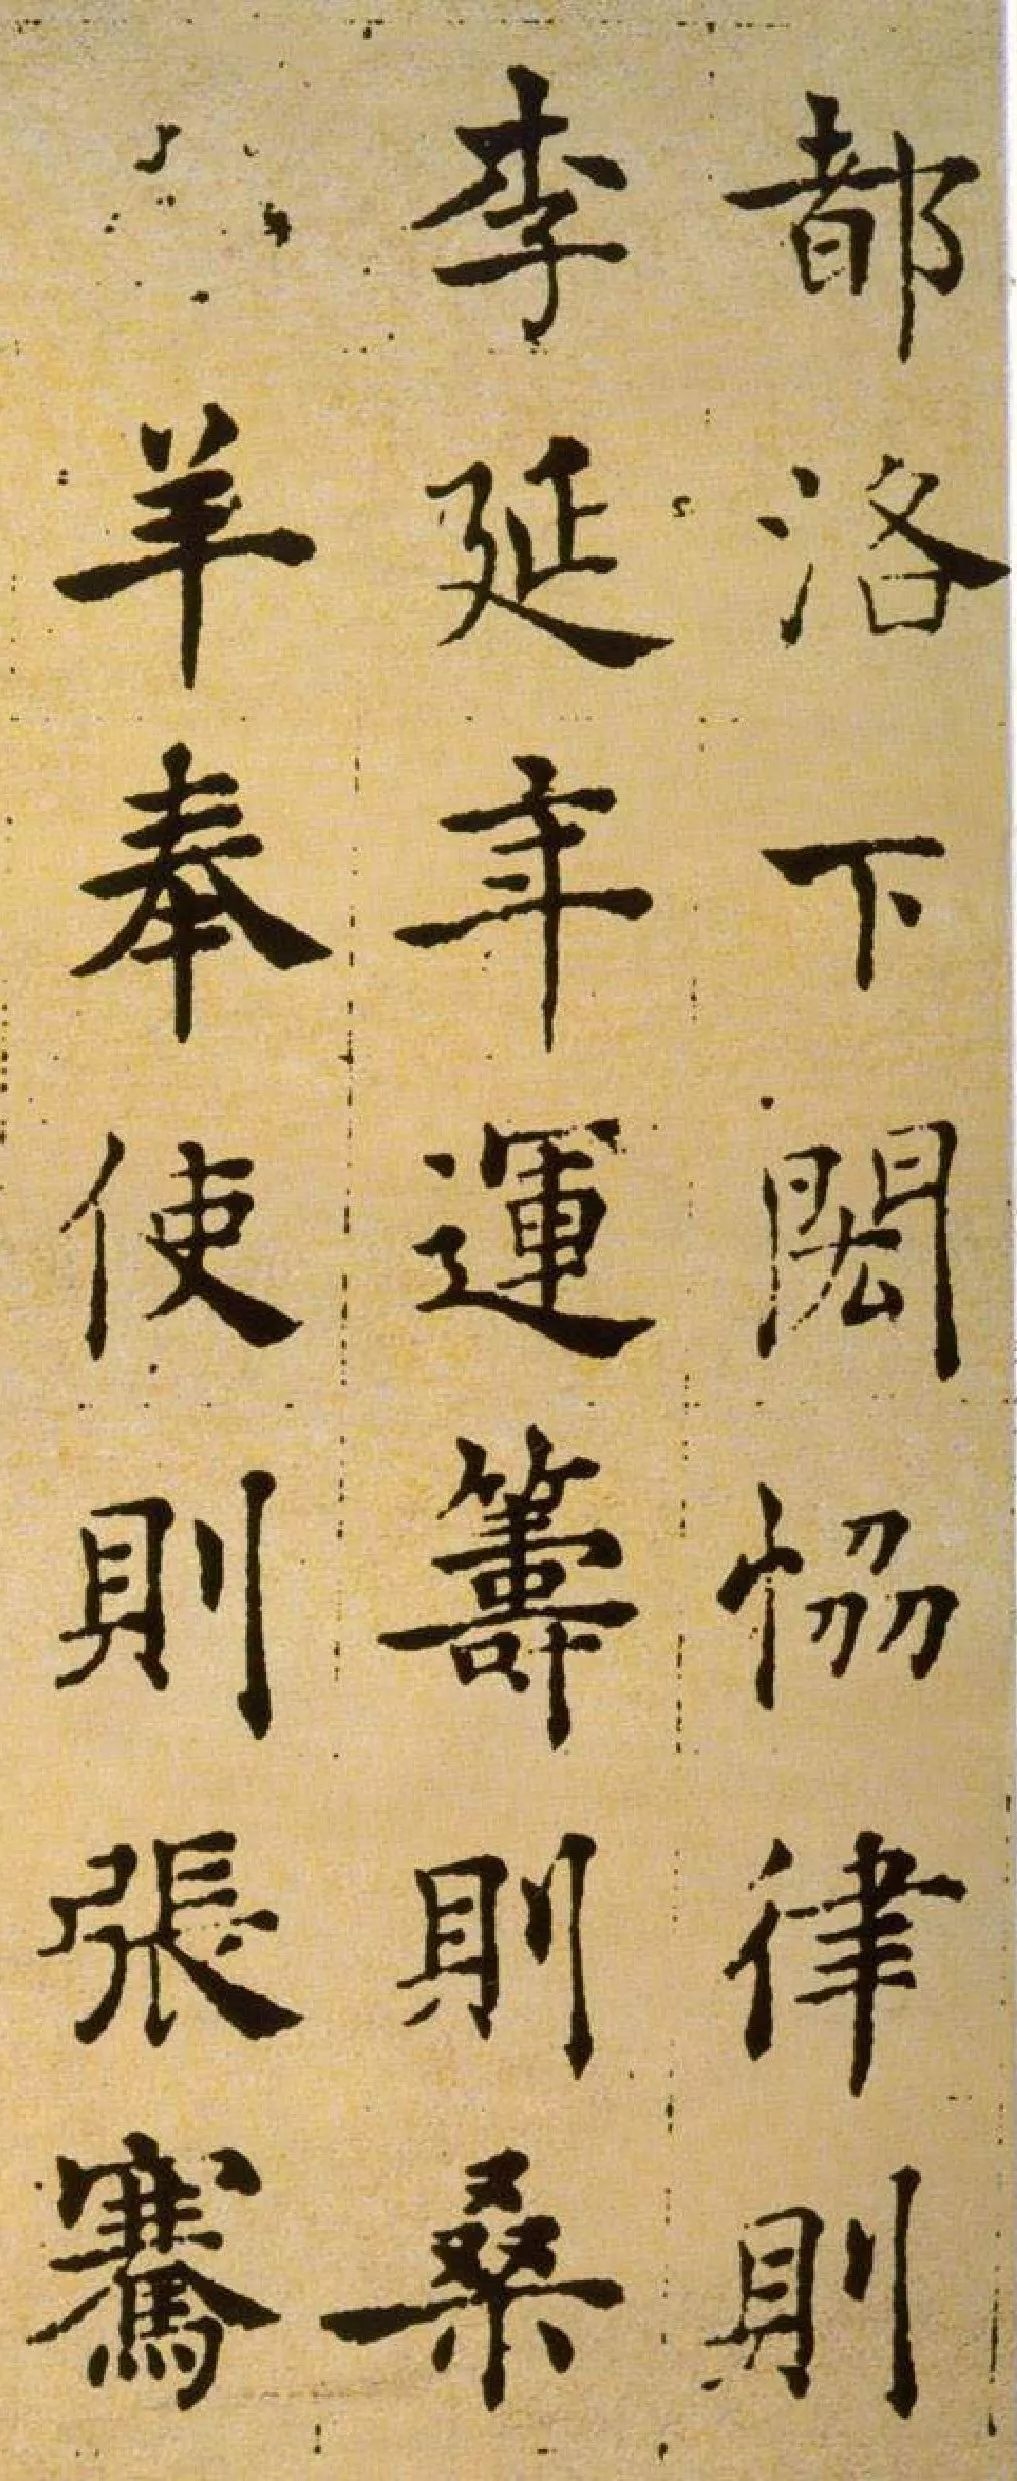 都洛下閎恊律則
李延年運籌則桑
羊奉使則張騫